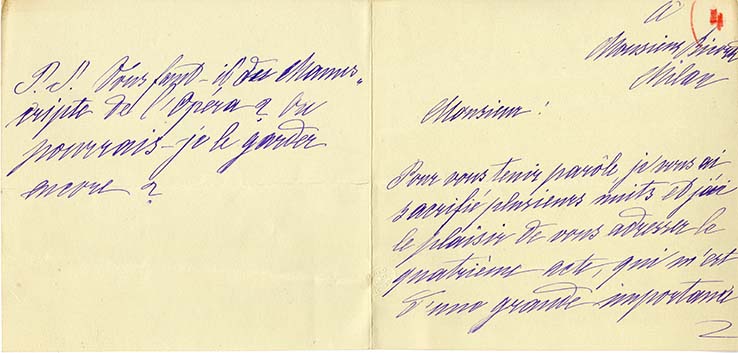 P.S. Vous faut-il du Manus„
cripte de l'Opéra? Ou
pourrais-je le garder
encore?
A
Monsieur Ricordi
Milan
Monsieur!
Pour vous tenir parôle je vous ai
sacrifié plusieurs nuits et j'ai
le plaisir de vous adresser le
quatrième acte, qui m'est
d'une grande importance